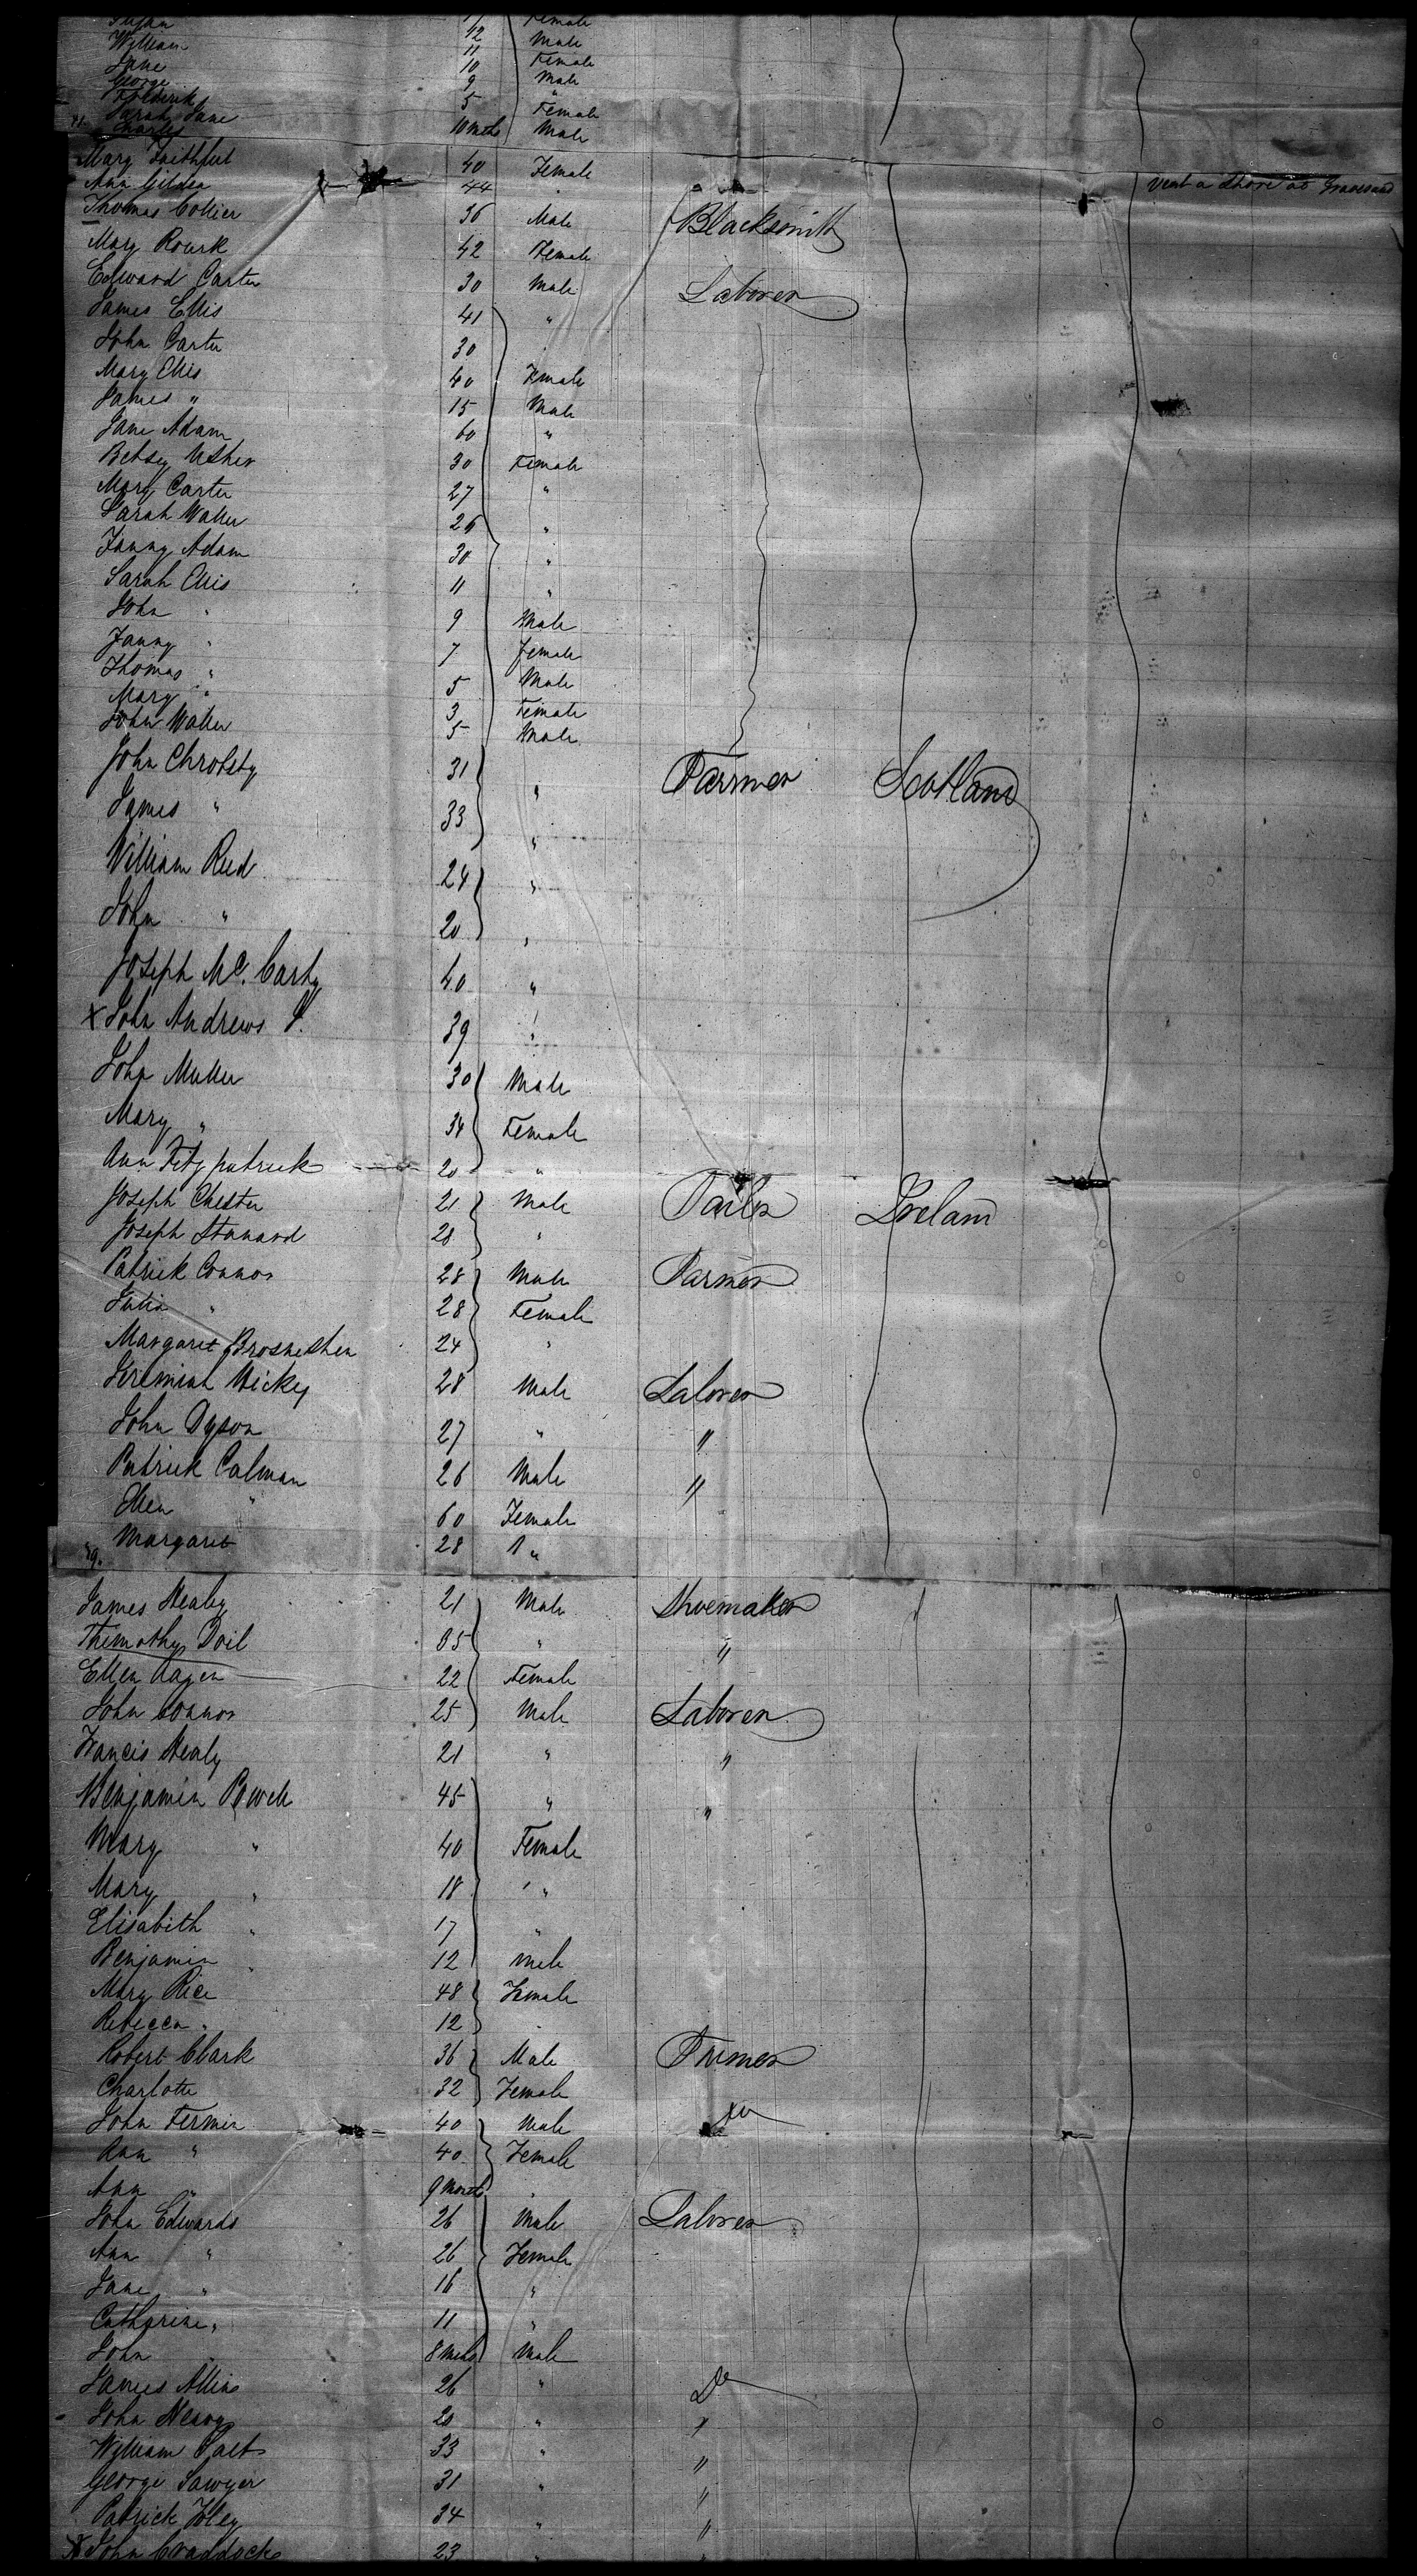 Susan 17 Female
William 12 Male
Jane 11 Female
George 10 Male
Frederik 9 "
Sarah Jane 5 Female
Charles 10 mths Male
Mary Faithfull 40 Female
Ann Gilden 44 " Went a Shore at Gravesend
Thomas Collier 36 Male Blacksmith
Mary Rourk 42 Female
Edward Carter 30 Male Laborer
James Ellis 41 "
John Carter 30
Mary Ellis 40 Female
James " 15 Male
Jane Adam 60 "
Betsey Usher 30 Female
Mary Carter 27 "
Sarah Waller 26 "
Fanny Adam 30 "
Sarah Ellis 11 "
John " 9 Male
Fanny " 7 Female
Thomas " 5 Male
Mary " 3 Female
John Waller 5 Male
John Chrobsty 31 " Farmer Scotland
James " 33 "
William Reed 24 "
John " 20 "
Joseph Mc. Carty 40 "
x John Andrews J. 39 "
John Muller 30 Male
Mary " 34 Female
Ann Fitzpatrick 20 "
Joseph Chester 21 Male Tailor Ireland
Joseph Stanard 20 "
Patrick Connor 28 Male Farmer
Julia " 28 Female
Margaret Brosneshen 24 "
Jeremiah Hickey 28 Male Laborer
John Dyson 27 " "
Patrick Calman 26 Male "
Ellen " 60 Female
Margaret 28 "
James Healey 21 Male Shoemaker
Themothy Doil 05 " "
Ellen Hagen 22 Female
John Connor 25 Male Laborer
Francis Healy 21 " "
Benjamin Powell 45 " "
Mary " 40 Female
Mary " 18 "
Elisabith " 17 "
Benjamin " 12 Male
Mary Rice 48 Female
Rebecca " 12 "
Robert Clark 36 Male Farmer
Charlotte 32 Female
John Fermin 40 Male Do
Ann " 40 Female
Ann " 9 Months "
John Edwards 26 Male Laborer
Ann " 26 Female
Jane " 16 "
Catherine " 11 "
John " 8 mths Male
James Allins 26 " Do
John Neavy 20 " "
William Salts 33 " "
George Sawyer 31 " "
Patrick Foley 34 " "
x John Craddock 23 " "